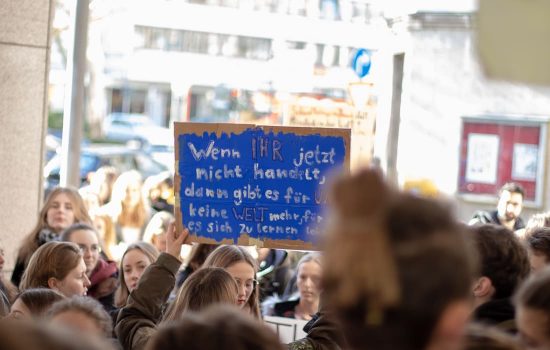 Wenn IHR jetzt
nicht handelt,
dann gibt es für
keine WELT mehr, für
es sich zu lernen